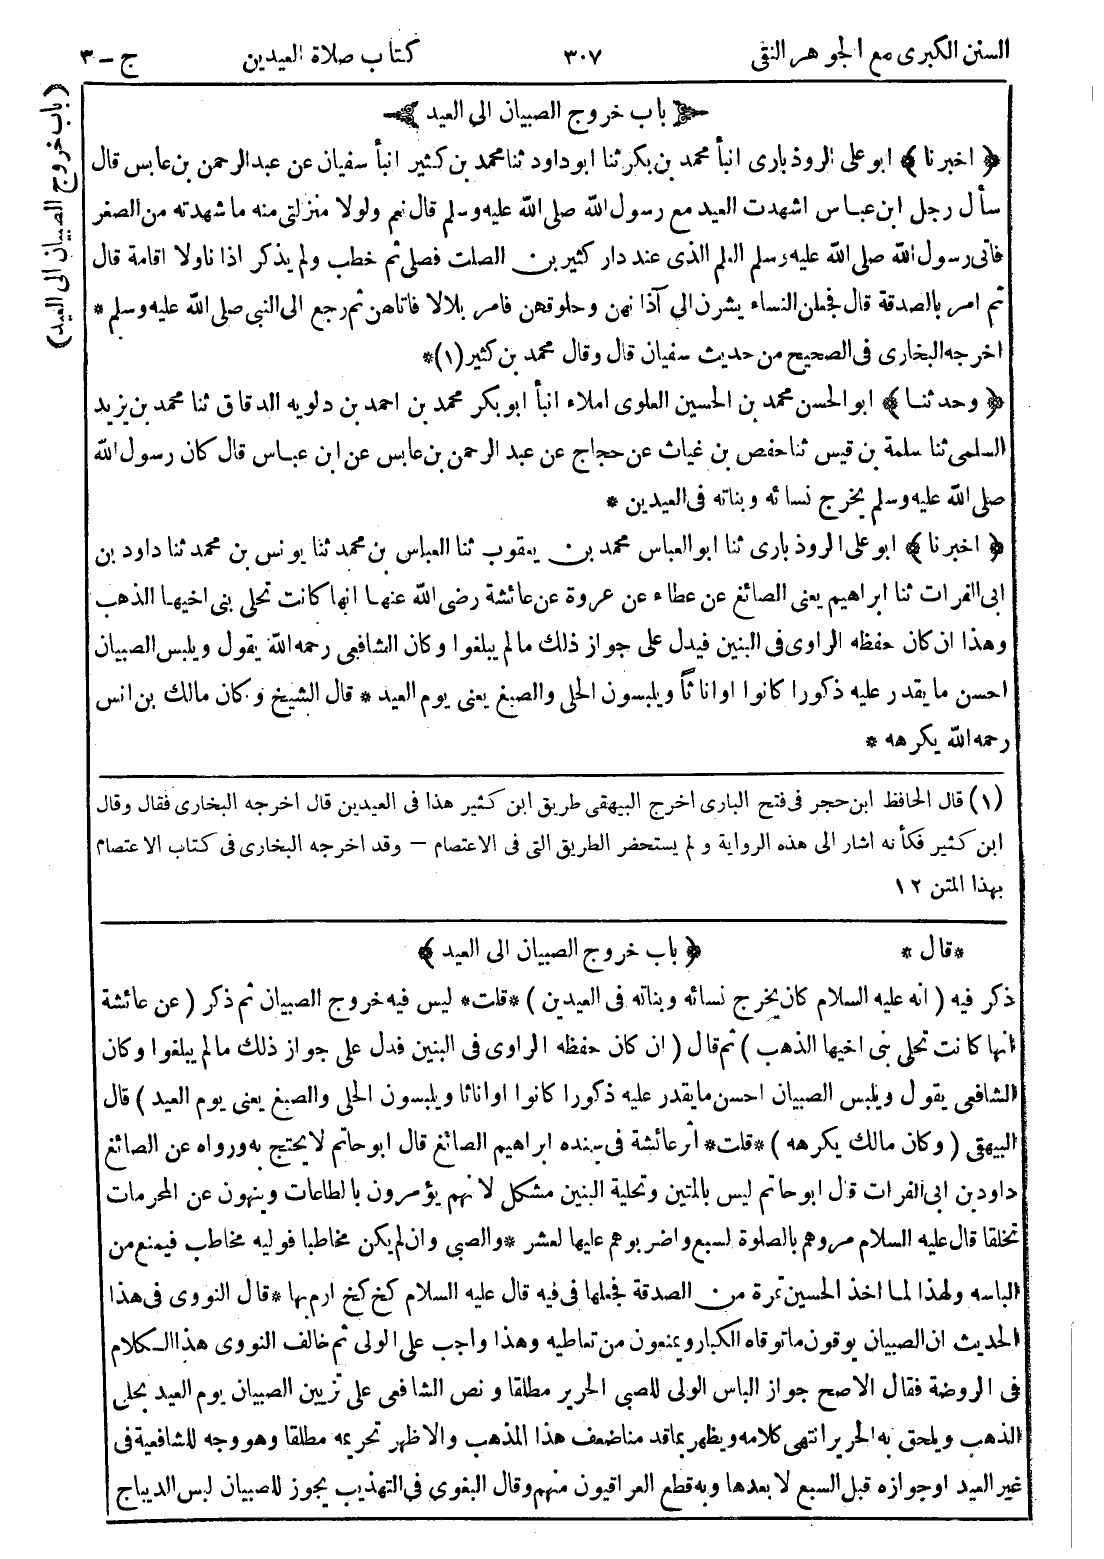 السنن الكبرى مع الجوهر النقى ٣٠٧ كتاب صلاة العيدين ج - ٣
(باب خروج الصبيان الى العيد)
باب خروج الصبيان الى العيد
﴿ اخبرنا ﴾ ابو على الروذبارى انبأ محمد بن بكر ثنا ابو داود ثنا محمد بن كثير انبأ سفيان عن عبد الرحمن بن عابس قال
سأل رجل ابن عباس اشهدت العيد مع رسول الله صلى الله عليه وسلم قال نعم ولولا منزلتى منه ما شهدته من الصغر
فاتى رسول الله صلى الله عليه وسلم العلم الذى عند دار كثير بن الصلت فصلى ثم خطب ولم يذكر اذا ناولا اقامة قال
ثم امر بالصدقة قال فجعلن النساء يشرن الى آذا نهن وحلوقهن فامر بلالا فاتاهن ثم رجع الى النبى صلى الله عليه وسلم *
اخرجه البخارى فى الصحيح من حديث سفيان قال وقال محمد بن كثير (١)*
﴿ وحدثنا ﴾ ابو الحسن محمد بن الحسين العلوى املاء انبأ ابو بكر محمد بن احمد بن دلويه الدقاق ثنا محمد بن يزيد
السلمى ثنا سلمة بن قيس ثنا حفص بن غياث عن حجاج عن عبد الرحمن بن عابس عن ابن عباس قال كان رسول الله
صلى الله عليه وسلم يخرج نسائه وبناته فى العيدين *
﴿ اخبرنا ﴾ ابو على الروذبارى ثنا ابو العباس محمد بن يعقوب ثنا العباس بن محمد ثنا يونس بن محمد ثنا داود بن
ابى الفرات ثنا ابراهيم يعنى الصائغ عن عطاء عن عروة عن عائشة رضى الله عنها انها كانت تحلى بنى اخيها الذهب
وهذا ان كان حفظه الراوى فى البنين فيدل على جواز ذلك ما لم يبلغوا وكان الشافعى رحمه الله يقول ويلبس الصبيان
احسن ما يقدر عليه ذكورا كانوا او اناثاً ويلبسون الحلى والصبغ يعنى يوم العيد * قال الشيخ وكان مالك بن انس
رحمه الله يكرهه *
(١) قال الحافظ ابن حجر فى فتح البارى اخرج البيهقى طريق ابن كثير هذا فى العيدين قال اخرجه البخارى فقال وقال
ابن كثير فكأنه اشار الى هذه الرواية ولم يستحضر الطريق التى فى الاعتصام – وقد اخرجه البخارى فى كتاب الاعتصام
بهذا المتن ١٢
*قال * ﴿ باب خروج الصبيان الى العيد ﴾
ذكر فيه ( انه عليه السلام كان يخرج نسائه وبناته فى العيدين ) *قلت* ليس فيه خروج الصبيان ثم ذكر ( عن عائشة
انها كانت تحلى بنى اخيها الذهب ) ثم قال ( ان كان حفظه الراوى فى البنين فدل على جواز ذلك ما لم يبلغوا وكان
الشافعى يقول ويلبس الصبيان احسن ما يقدر عليه ذكورا كانوا اواناثا ويلبسون الحلى والصبغ يعنى يوم العيد ) قال
البيهقى ( وكان مالك يكرهه ) *قلت* اثر عائشة فى سنده ابراهيم الصائغ قال ابو حاتم لا يحتج به ورواه عن الصائغ
داود بن ابى الفرات قال ابو حاتم ليس بالمتين وتحلية البنين مشكل لانهم يؤمرون بالطاعات وينهون عن المحرمات
تخلقا قال عليه السلام مروهم بالصلوة لسبع واضربوهم عليها لعشر *والصبى وان لم يكن مخاطبا فوليه مخاطب فيمنع من
الباسه ولهذا لما اخذ الحسين تمرة من الصدقة فجعلها فى فيه قال عليه السلام كخ كخ ارم بها *قال النووى فى هذا
الحديث ان الصبيان يوقون ما توقاه الكبار ويمنعون من تعاطيه وهذا واجب على الولى ثم خالف النووى هذا الكلام
فى الروضة فقال الاصح جواز الباس الولى للصبى الحرير مطلقا ونص الشافعى على تزيين الصبيان يوم العيد بحلى
الذهب ويلحق به الحرير انتهى كلامه ويظهر بما قد مناضعف هذا المذهب والاظهر تحريمه مطلقا وهو وجه للشافعية فى
غير العيد اوجوازه قبل السبع لا بعدها وبه قطع العراقيون منهم وقال البغوى فى التهذيب يجوز للصبيان لبس الديباج